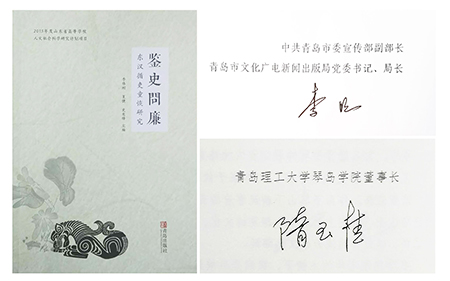 2013年度山东省高等学校
人文社会科学研究计划项目
鉴史問廉
东汉循吏童恢研究
主编
青岛出版社
中共青岛市委宣传部副部长
青岛市文化广电新闻出版局党委书记、局长
李明
青岛理工大学琴岛学院董事长
隋玉桂